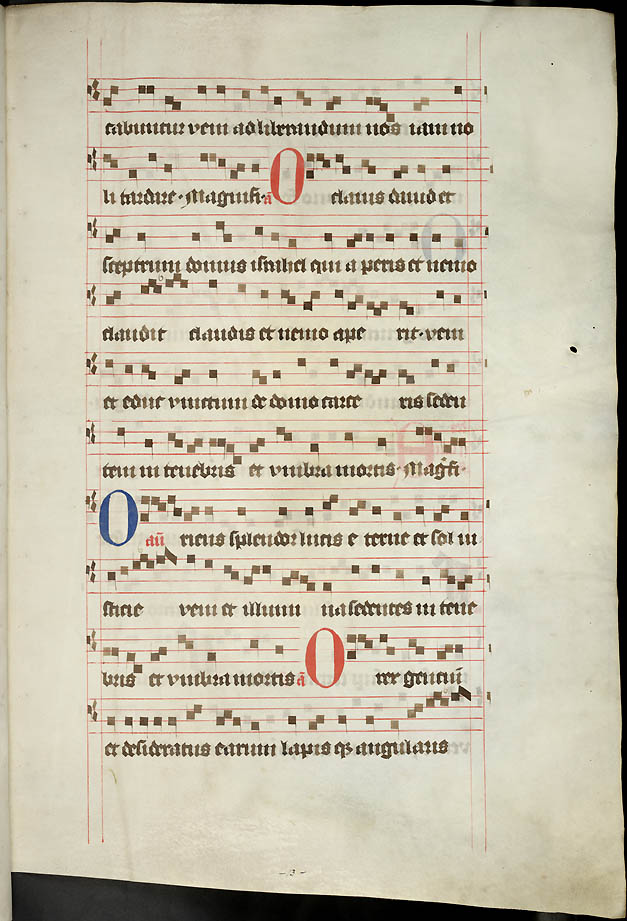 tabuntur veni ad liberandum nos iam no
li tardare · Magnifi · a O clauis dauid et
sceptrum domus israhel qui a peris et nemo
claudit claudis et nemo ape rit · veni
et educ vinctum de domo carce ris seden
tem in tenebris et vmbra mortis · Magfi ·
O an̄ riens splendor lucis e terne et sol iu
sticie veni et illumi na sedentes in tene
bris et vmbra mortis a O rex gentiū
et desideratus earum lapis qȝ angularis
3